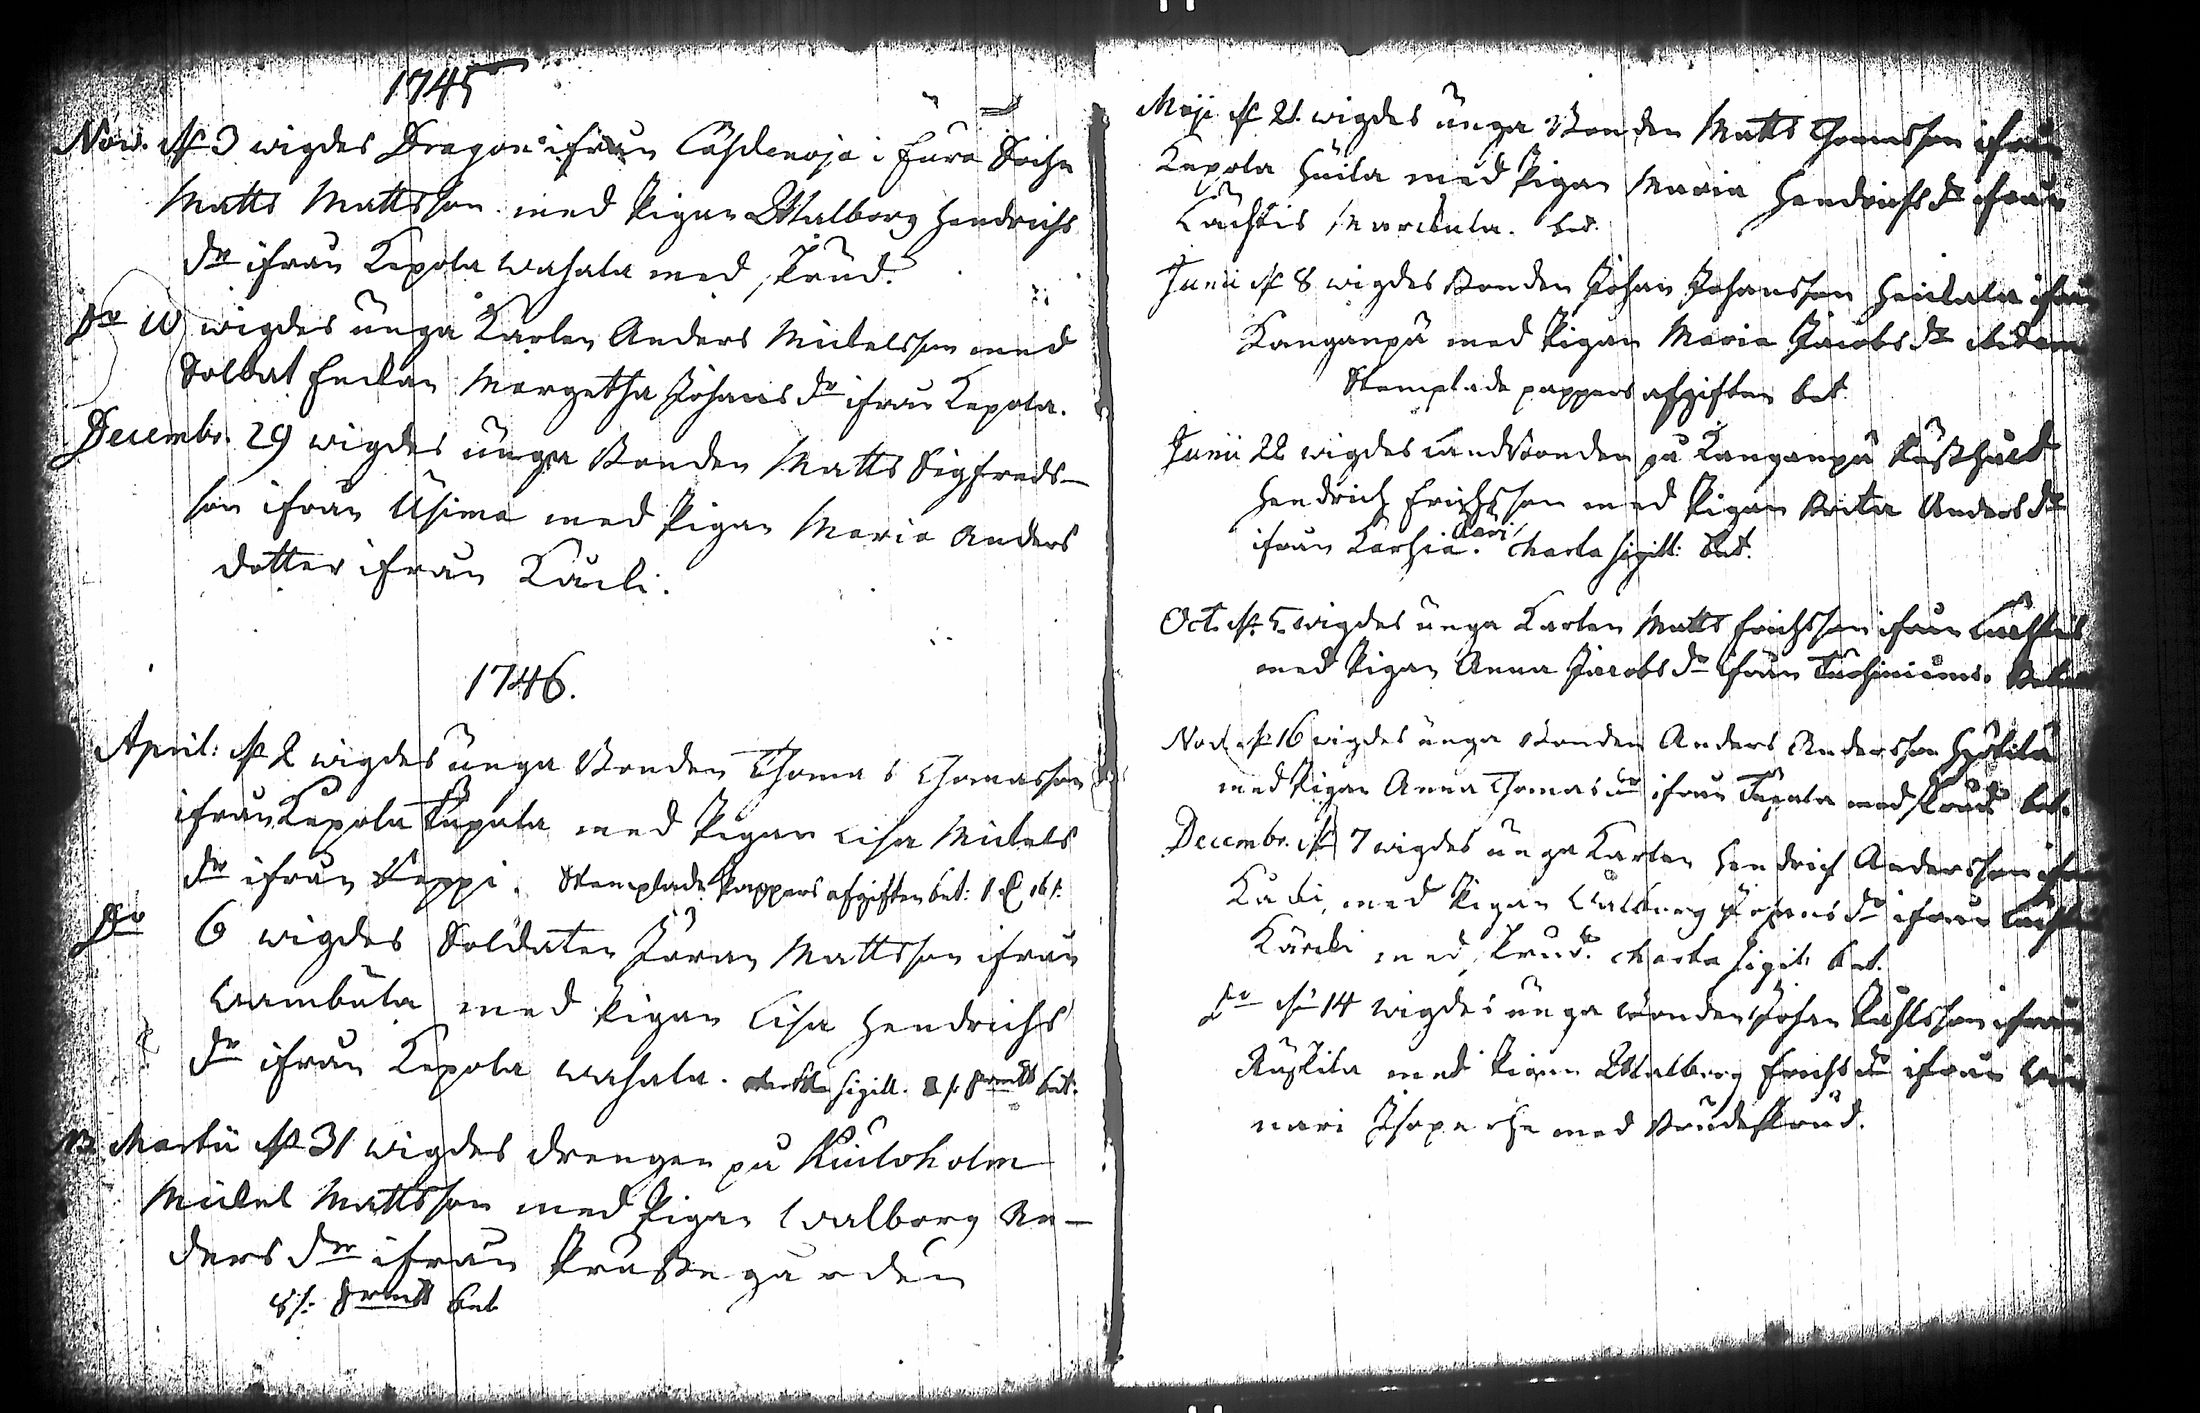 1745
Nov. d. 3 wigdes Dragon ifrån Cåskenoja i Eura Sochn
Matts Mattsson med Pigan Walborg Hendrichs
dr ifrån Kepola Wahala med skrud.
Do 10 wigdes unga Karlen Anders Mickelsson med
Soldat Enckan Margetha Johans dr ifrån Kepola.
Decembr. 29 wigdes unga Bonden Matts Sigfreds-
son ifrån Usima med Pigan Maria Anders
dotter ifrån Käcki.
1746.
April: d. 2 wigdes unga Bonden Thomas Thomasson
ifrån Kepola Tupala med Pigan Lisa Mickels
dr ifrån Seppi. Stemplade Pappers afgiften bet:
Do 6 wigdes Soldaten Jöran Mattsson ifrån
Wambula med Pigan Lisa Hendrichs
dr ifrån Kepola Wahala. Sigill. bet:
Martii d. 31 wigdes drengen på Kiuloholm
Mickel Mattsson med Pigan Walborg An-
ders dr ifrån Prustegården
8 s. bet
Maji d. 21. wigdes unga Bonden Matts Thomasson ifrån
Kepola Huila med Pigan Maria Hendrichs dr ifrån
Lächtis Marckula. bet.
Junii d. 8 wigdes Bonden Johan Johansson Heickala ifrån
Kanganpä med Pigan Maria Jacobs dr ibidem
Stemplade pappers afgiften bet
Junii 22 wigdes Landbonden på Kanganpä Rusthåld
Hendrich Erichsson med Pigan Brita Anders dr
ifrån Karhia. Charta Sigill: bet.
Oct. d. 5. wigdes unga Karlen Matts Erichsson ifrån Lächtis
med Pigan Anna Jacobs dr ifrån Tuohiniemi.
Nov. d. 16 wigdes unga Bonden Anders Andersson
med Pigan Anna Thomas dr ifrån Tupala med skrud bet.
Decembr. d. 7 wigdes unga Karlen Hendrich Andersson ifrån
Käcki, med Pigan Walborg Johans dr ifrån
Kärcki med skrud. Charta Sigill: bet.
Do d. 14 wigdes unga Bonden Johan Påhlsson ifrån
Ruskila med Pigan Walborg Erichs dr ifrån
nari Isopere med Brudeskrud.